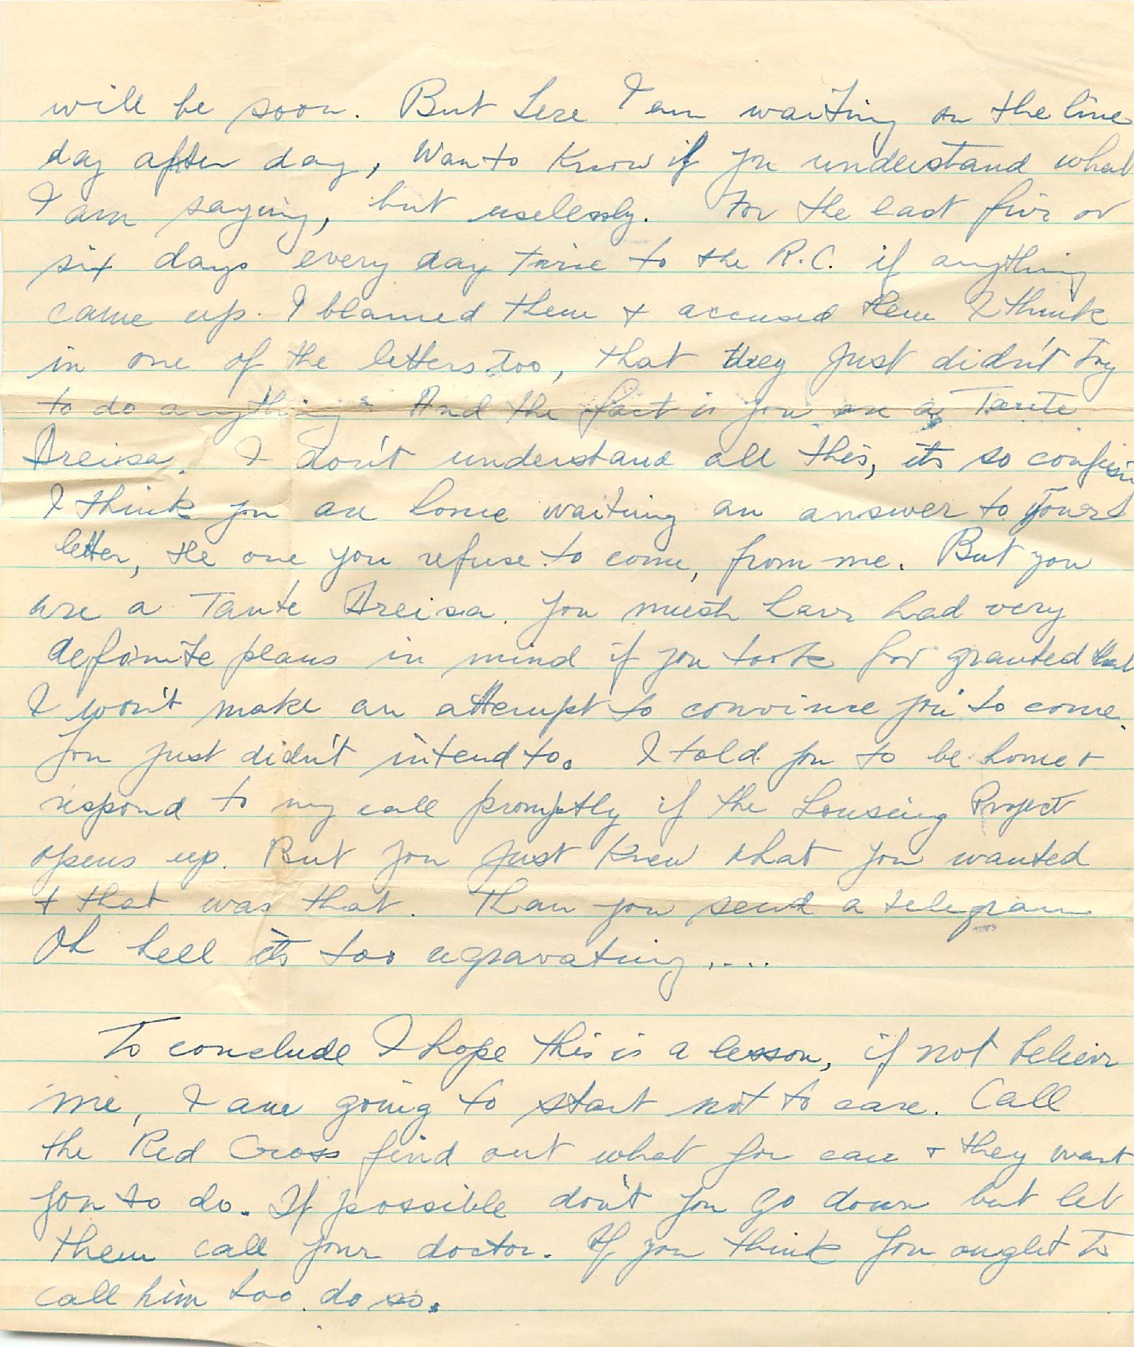 will be soon. But here I am waiting on the line
day after day, Want to know if you understand what
I am saying, but uselessly. For the last five or
six days every day twice to the R.C. if anything
came up. I blamed them + accused them I think
in one of the letters too, that they just didn't try
to do anything. And the fact is you are a Tante
Areisa. I don't understand all this, its so confusin
I think you are home waiting an answer to yours
letter, the one you refuse to come, from me. But you
are a Tante Areisa. You mush have had very
definite plans in mind if you took for granted that
I won't make an attempt to convince you to come.
You just didn't intend to. I told you to be home +
respond to my call promptly if the housing Project
opens up. But you just knew what you wanted
+ that was that. Than you send a telegram
Oh hell its too agravating....
To conclude I hope this is a lesson, if not believe
me, I am going to start not to care. Call
the Red Cross find out what you can + they want
you to do. If possible don't you go down but let
them call your doctor. If you think you ought to
call him too do so.